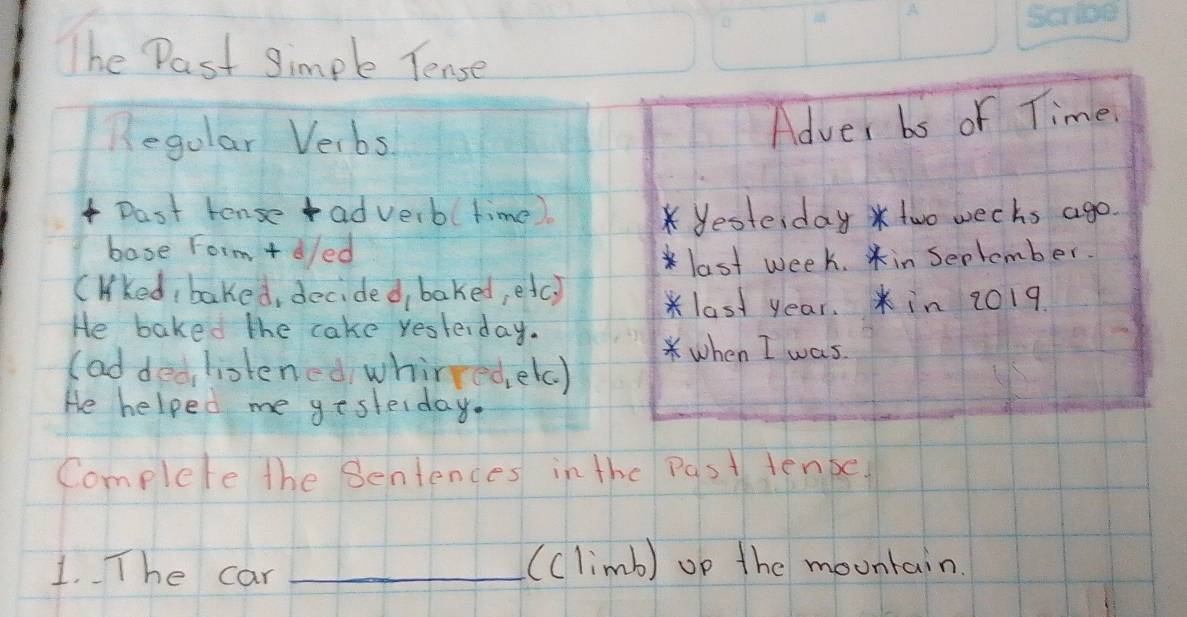 Scribe
The Past Simple Tense
Regular Verbs.
+ Past tense + adverb (time).
base Form + d/ed
(liked, baked, decided, baked, etc)
He baked the cake yesterday.
(added, listened, whirred, etc.)
He helped me yesterday.
Adverbs of Time.
* Yesterday * two weeks ago.
* last week. * in September.
* last year. * in 2019.
* when I was.
Complete the Sentences in the Past tense.
1.- The car __________ (Climb) up the mountain.